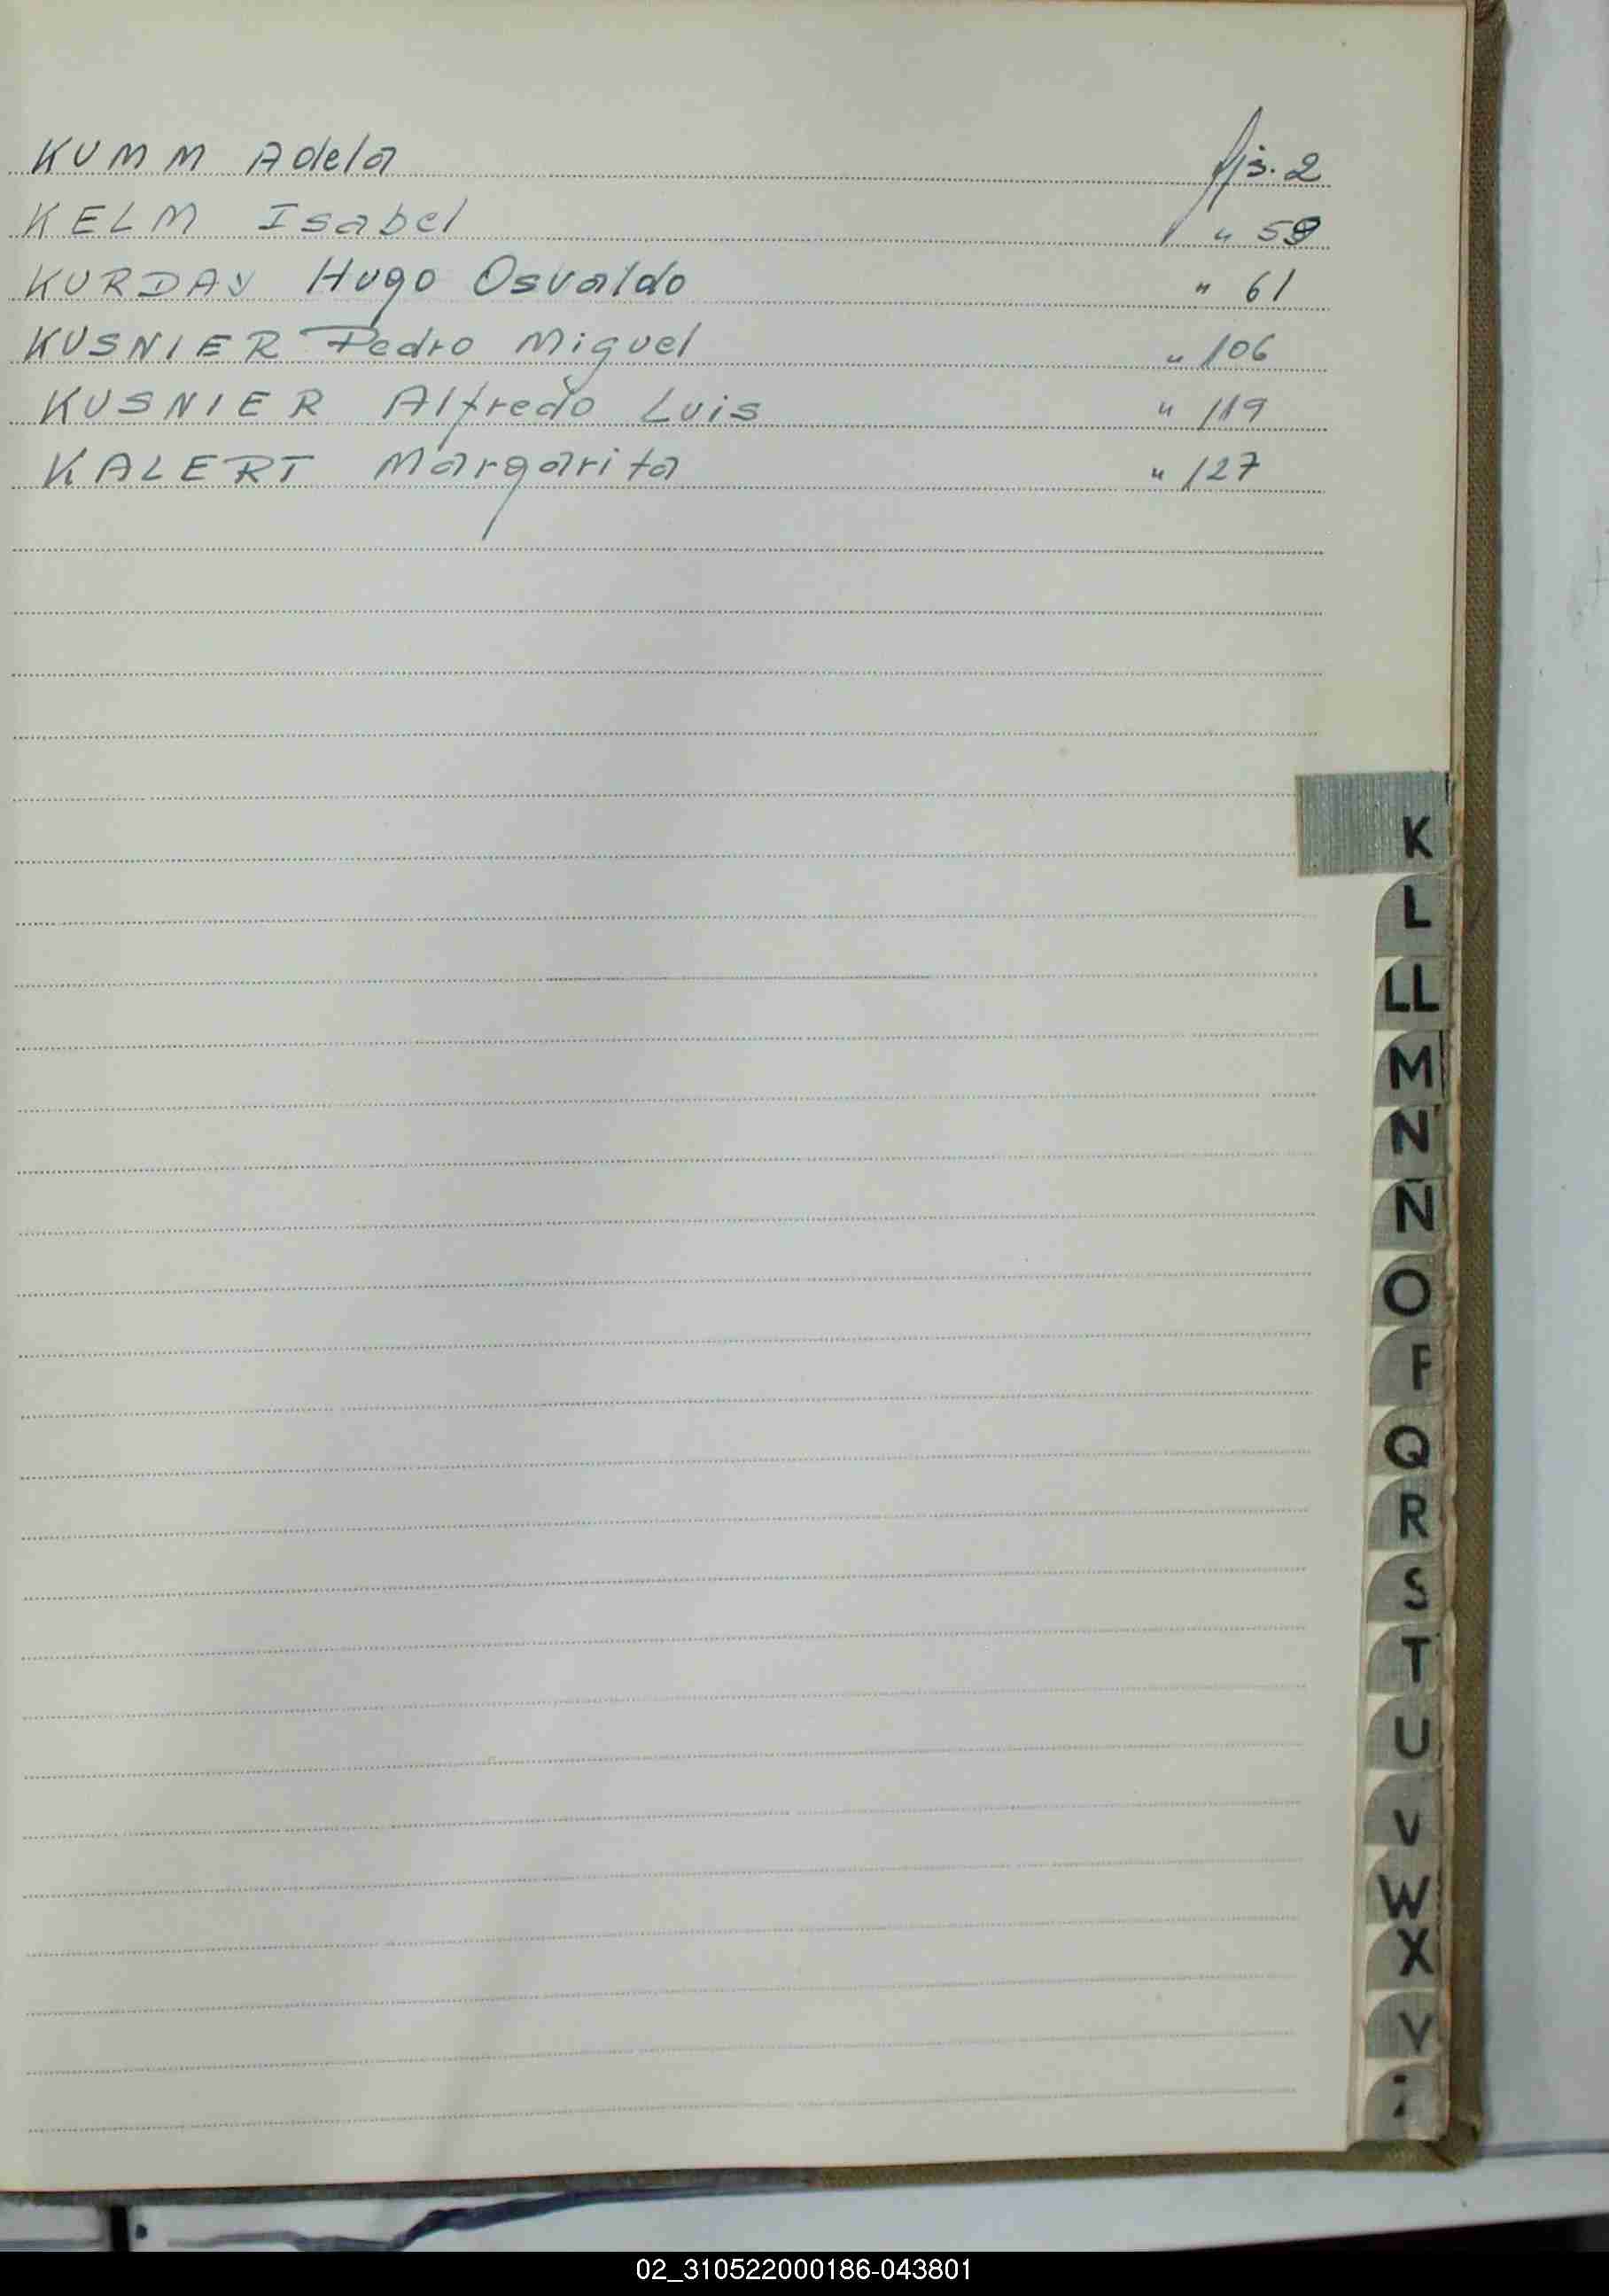 KUMM Adela fjs. 2
KELM Isabel " 59
KURDAY Hugo Osvaldo " 61
KUSNIER Pedro Miguel " 106
KUSNIER Alfredo Luis " 119
KALERT Margarita " 127
K
L
LL
M
N
N
O
Q
R
S
T
U
V
W
X
02_310522000186-043801